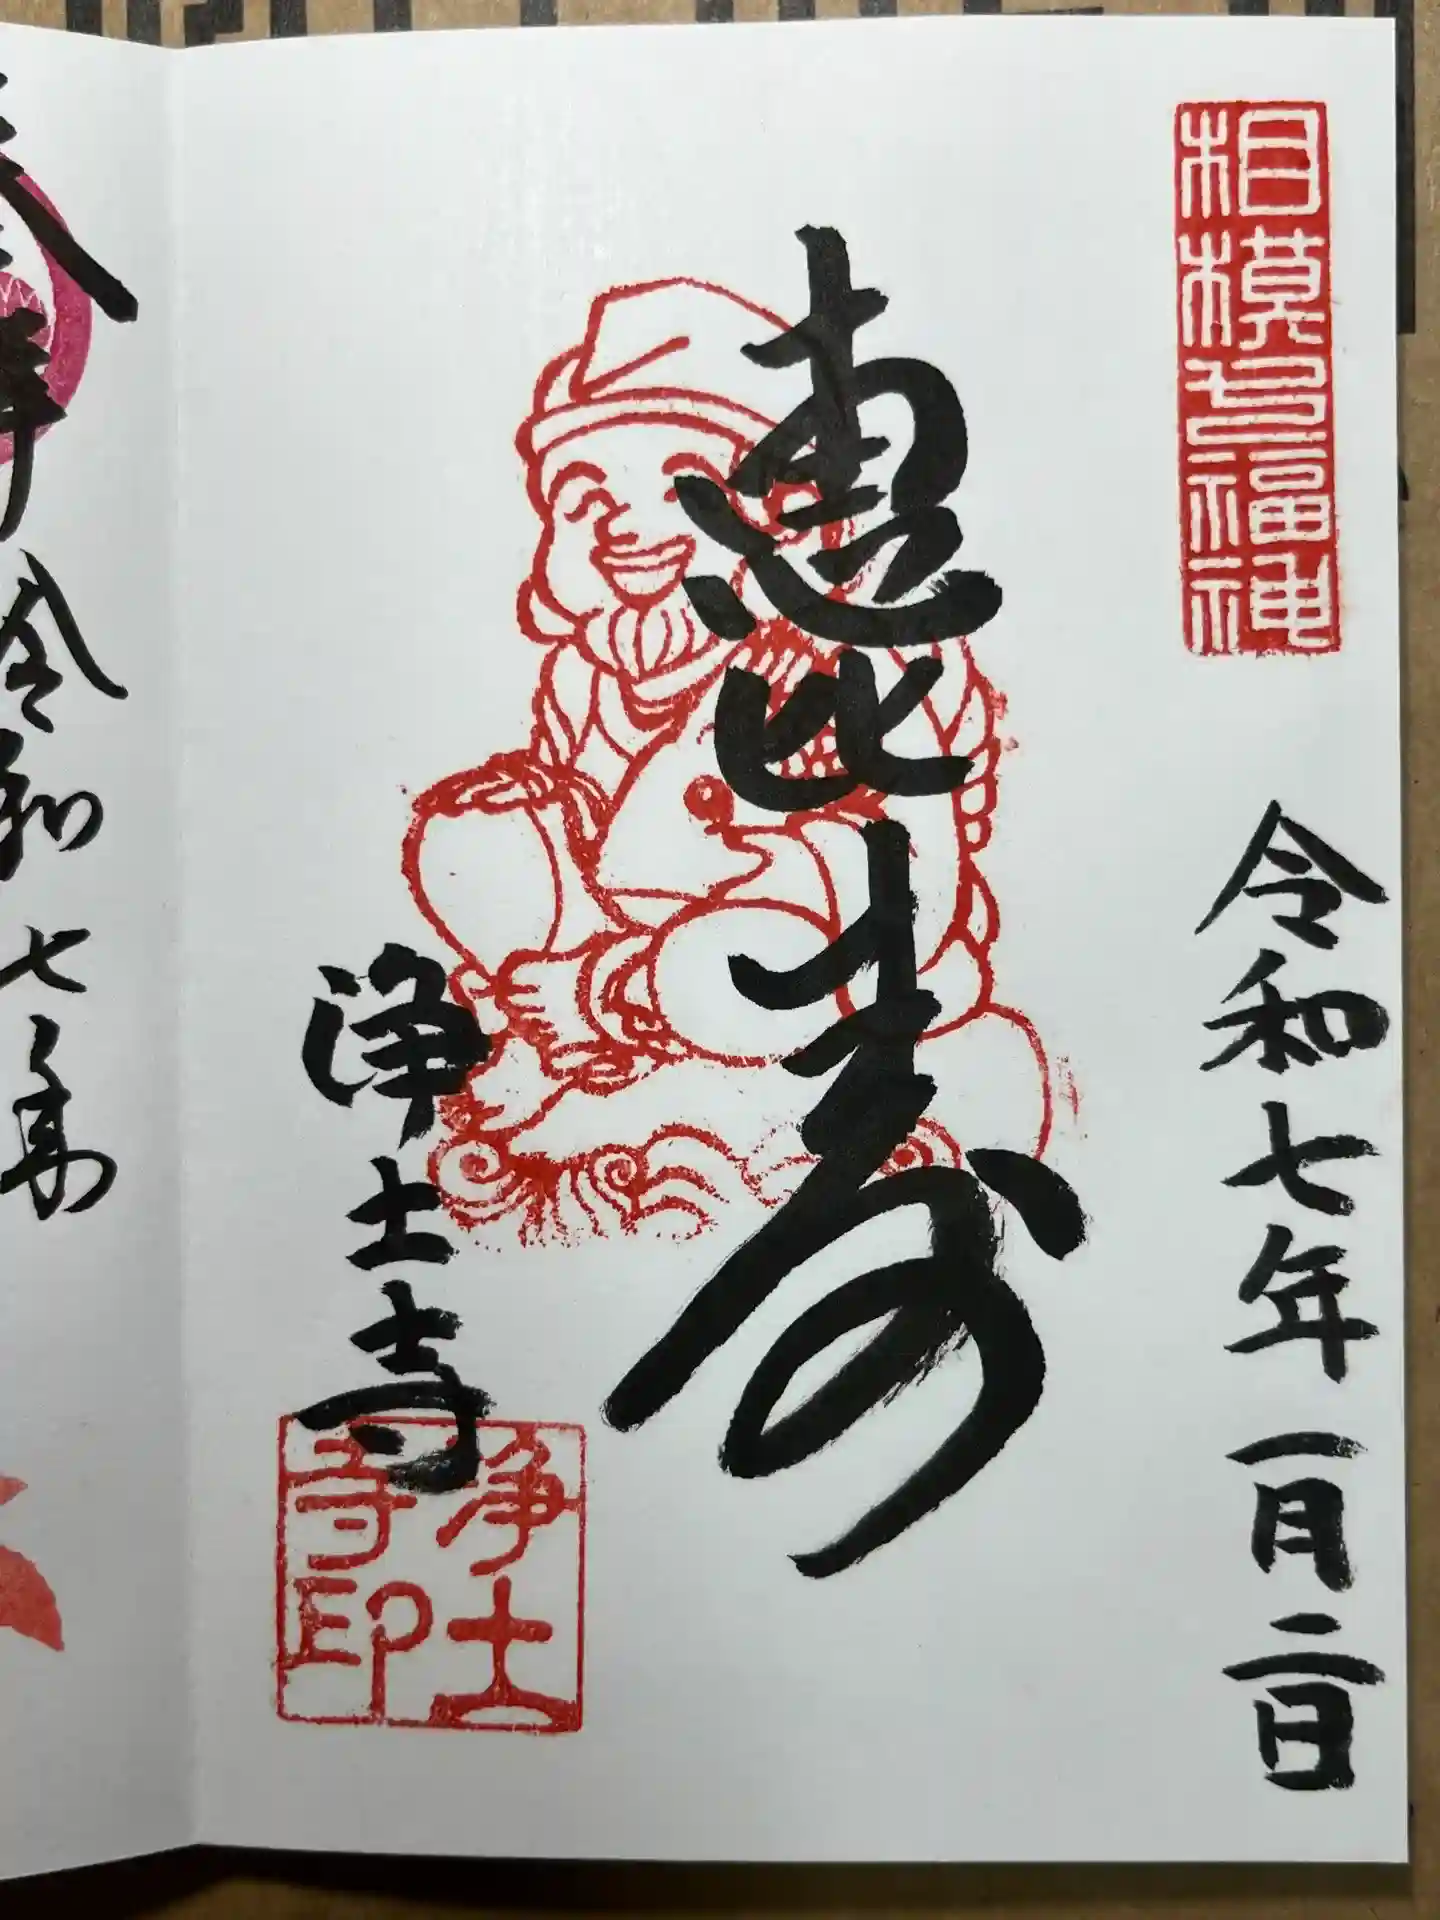 相模七福神
令和七年一月二日
恵比寿
浄土寺
浄土
寺印
拝
令和七年